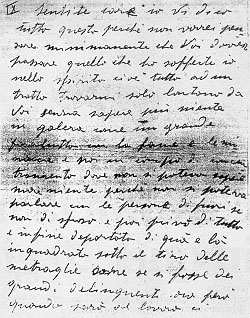 sentite cari io vi dico
tutto questo perche non vorrei pen
sare minimamente che Voi dover
passare quello che ho sofferto io
nello spirito cioè tutto ad un
tratto trovarmi solo lontano da
Voi senza sapere più niente
in galera come un grande
la fame e le mi
nacce e poi in campo di concen
tramento dove non si poteva sapere
mai niente perche non si poteva
parlare con le persone di fuori se
non di sfuso e poi privo di tutto
e infine deportato di qua e là
inquadrato sotto il tiro delle
metraglie come se si fosse dei
grandi delinquenti. ora però
quando sarò al lavoro ci